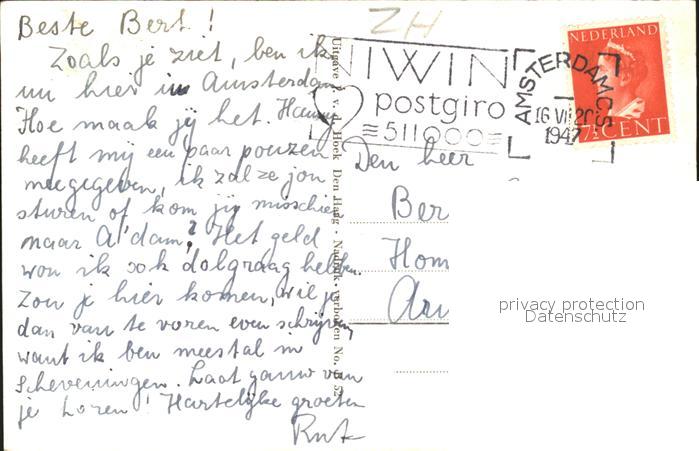 Beste Bert!
Zoals je ziet, ben ik
nu hier in Amsterdam
Hoe maak jij het. Hanny
heeft mij een paar
meegegeven, ik zal ze jou
sturen of kom jij misschien
naar A'dam? Het geld
wou ik ook dolgraag hebben.
Zou je hier komen, wil je
dan van te voren even schrijven,
want ik ben meestal in
Scheveningen. Laat gauw van
je horen! Hartelijke groeten
Uitgave v. d. Hoek Den Haag - Nadruk verboden No.
ZH
NIWIN
postgiro
511000
AMSTERDAM C.S
16 VI 20
1947
NEDERLAND
7½ CENT
Den heer
Ber
Hom
privacy protection
Datenschutz